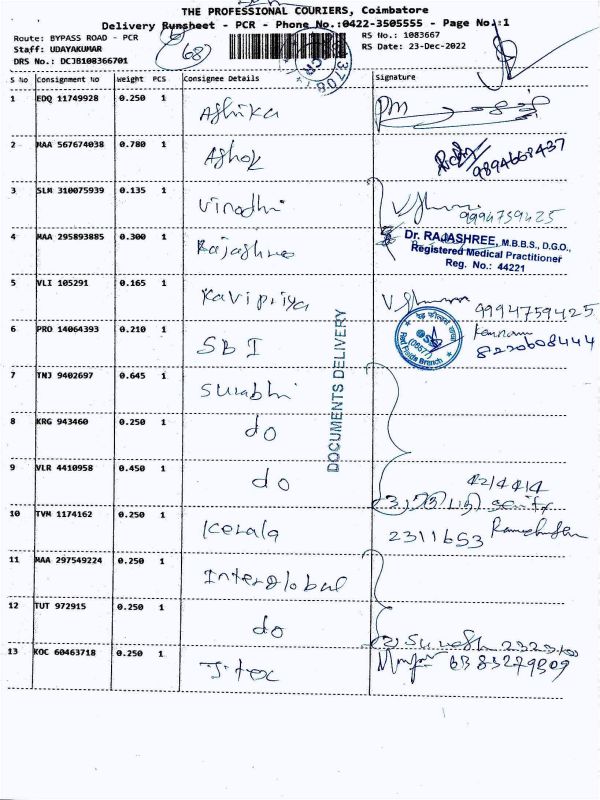 THE PROFESSIONAL COURIERS, Coimbatore
Delivery Runsheet - PCR - Phone No.:0422-3505555 - Page No.:1
Route: BYPASS ROAD - PCR
RS No.: 1083667
Staff: UDAYAKUMAR
68
RS Date: 23-Dec-2022
DRS No.: DCJB108366701
S No Consignment No Weight PCS Consignee Details Signature
1 EDQ 11749928 0.250 1 Ashika
2 MAA 567674038 0.780 1 Ashok 9894668437
3 SLM 310075939 0.135 1 Vinodhi 9994759425
4 MAA 295893885 0.300 1 Rajashree
Dr. RAJASHREE, M.B.B.S., D.G.O.,
Registered Medical Practitioner
Reg. No.: 44221
5 VLI 105291 0.165 1 Kavipriya 9994759425
6 PRO 14064393 0.210 1 SBI Kannan
8220608444
DOCUMENTS DELIVERY
7 TNJ 9402697 0.645 1 Surabhi
8 KRG 943460 0.250 1 do
9 VLR 4410958 0.450 1 do
424414
10 TVM 1174162 0.250 1 Kerala 2311653
11 MAA 297549224 0.250 1 Interglobal
12 TUT 972915 0.250 1 do
(2) Suresh
13 KOC 60463718 0.250 1 J-tex 6383279309